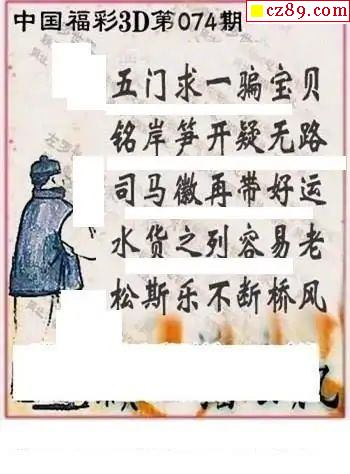 cz89.com
中国福彩3D第074期
五门求一骗宝贝
铭岸笋开疑无路
司马徽再带好运
水货之列容易老
松斯乐不断桥风